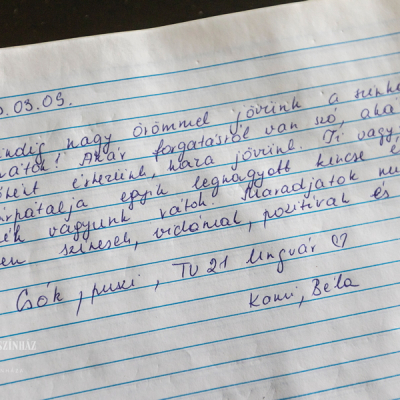 .03.05.
indig nagy örömmel jövünk a szính
Akár forgatásról van szó, aká
érezzünk, haza jövünk. Ti vagy
rpátalja egyik legnagyobb kincse é
k vagyunk rátok. Maradjatok
en színesek, vidámak, pozitívak és
Csók, puszi, TV21 Ungvár ♡
Kami, Béla
SZÍNHÁZ